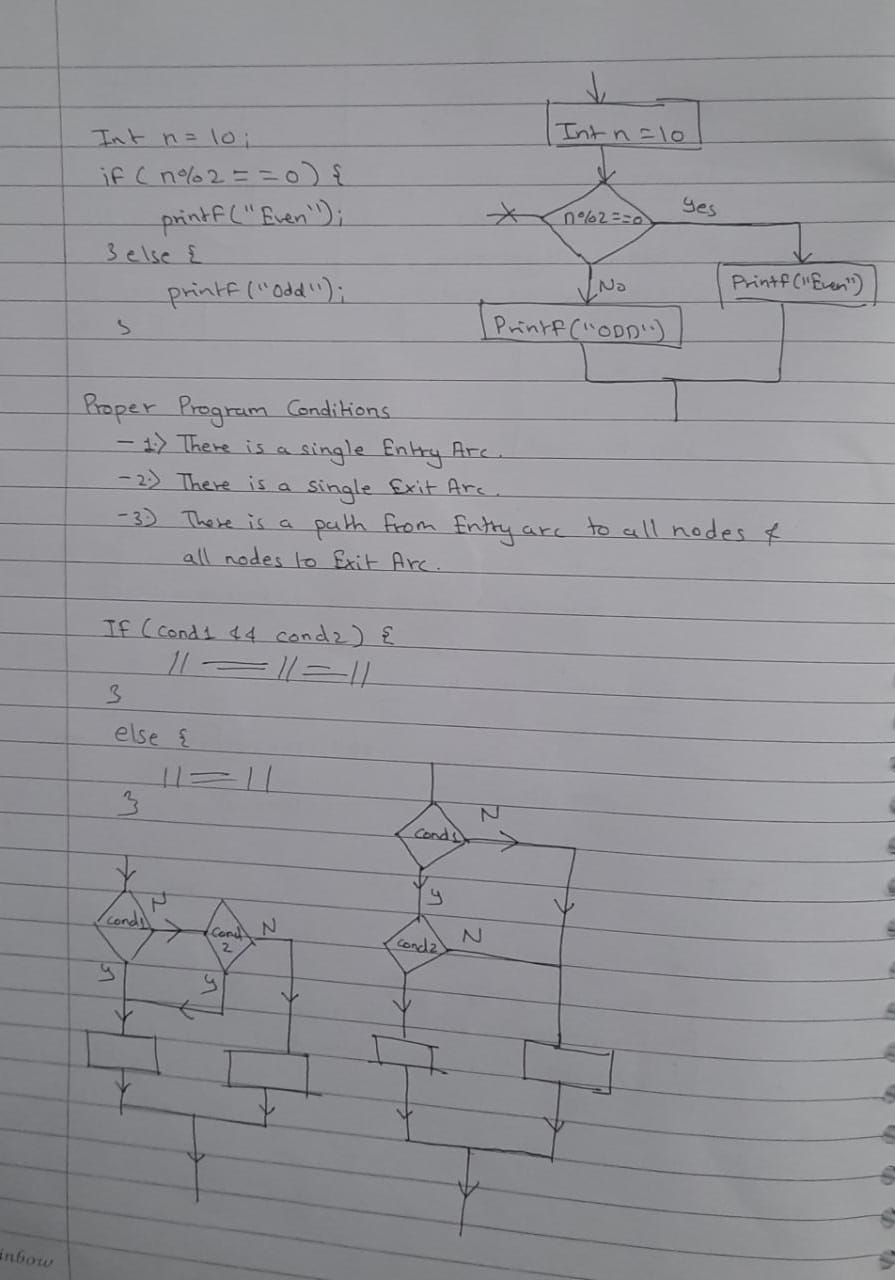 Int n = 10;
if (n%2 == 0) {
printf("Even");
} else {
printf("Odd");
}
Int n = 10
n%2==0
Yes
No
Printf("Even")
Printf("ODD")
Proper Program Conditions
- 1.) There is a single Entry Arc.
- 2.) There is a single Exit Arc.
- 3.) There is a path from Entry arc to all nodes &
all nodes to Exit Arc.
If (cond1 && cond2) {
// == // = //
}
else {
// = //
}
Cond1
N
Y
Cond2
N
Cond1
N
Cond
2
N
Y
Y
inbow